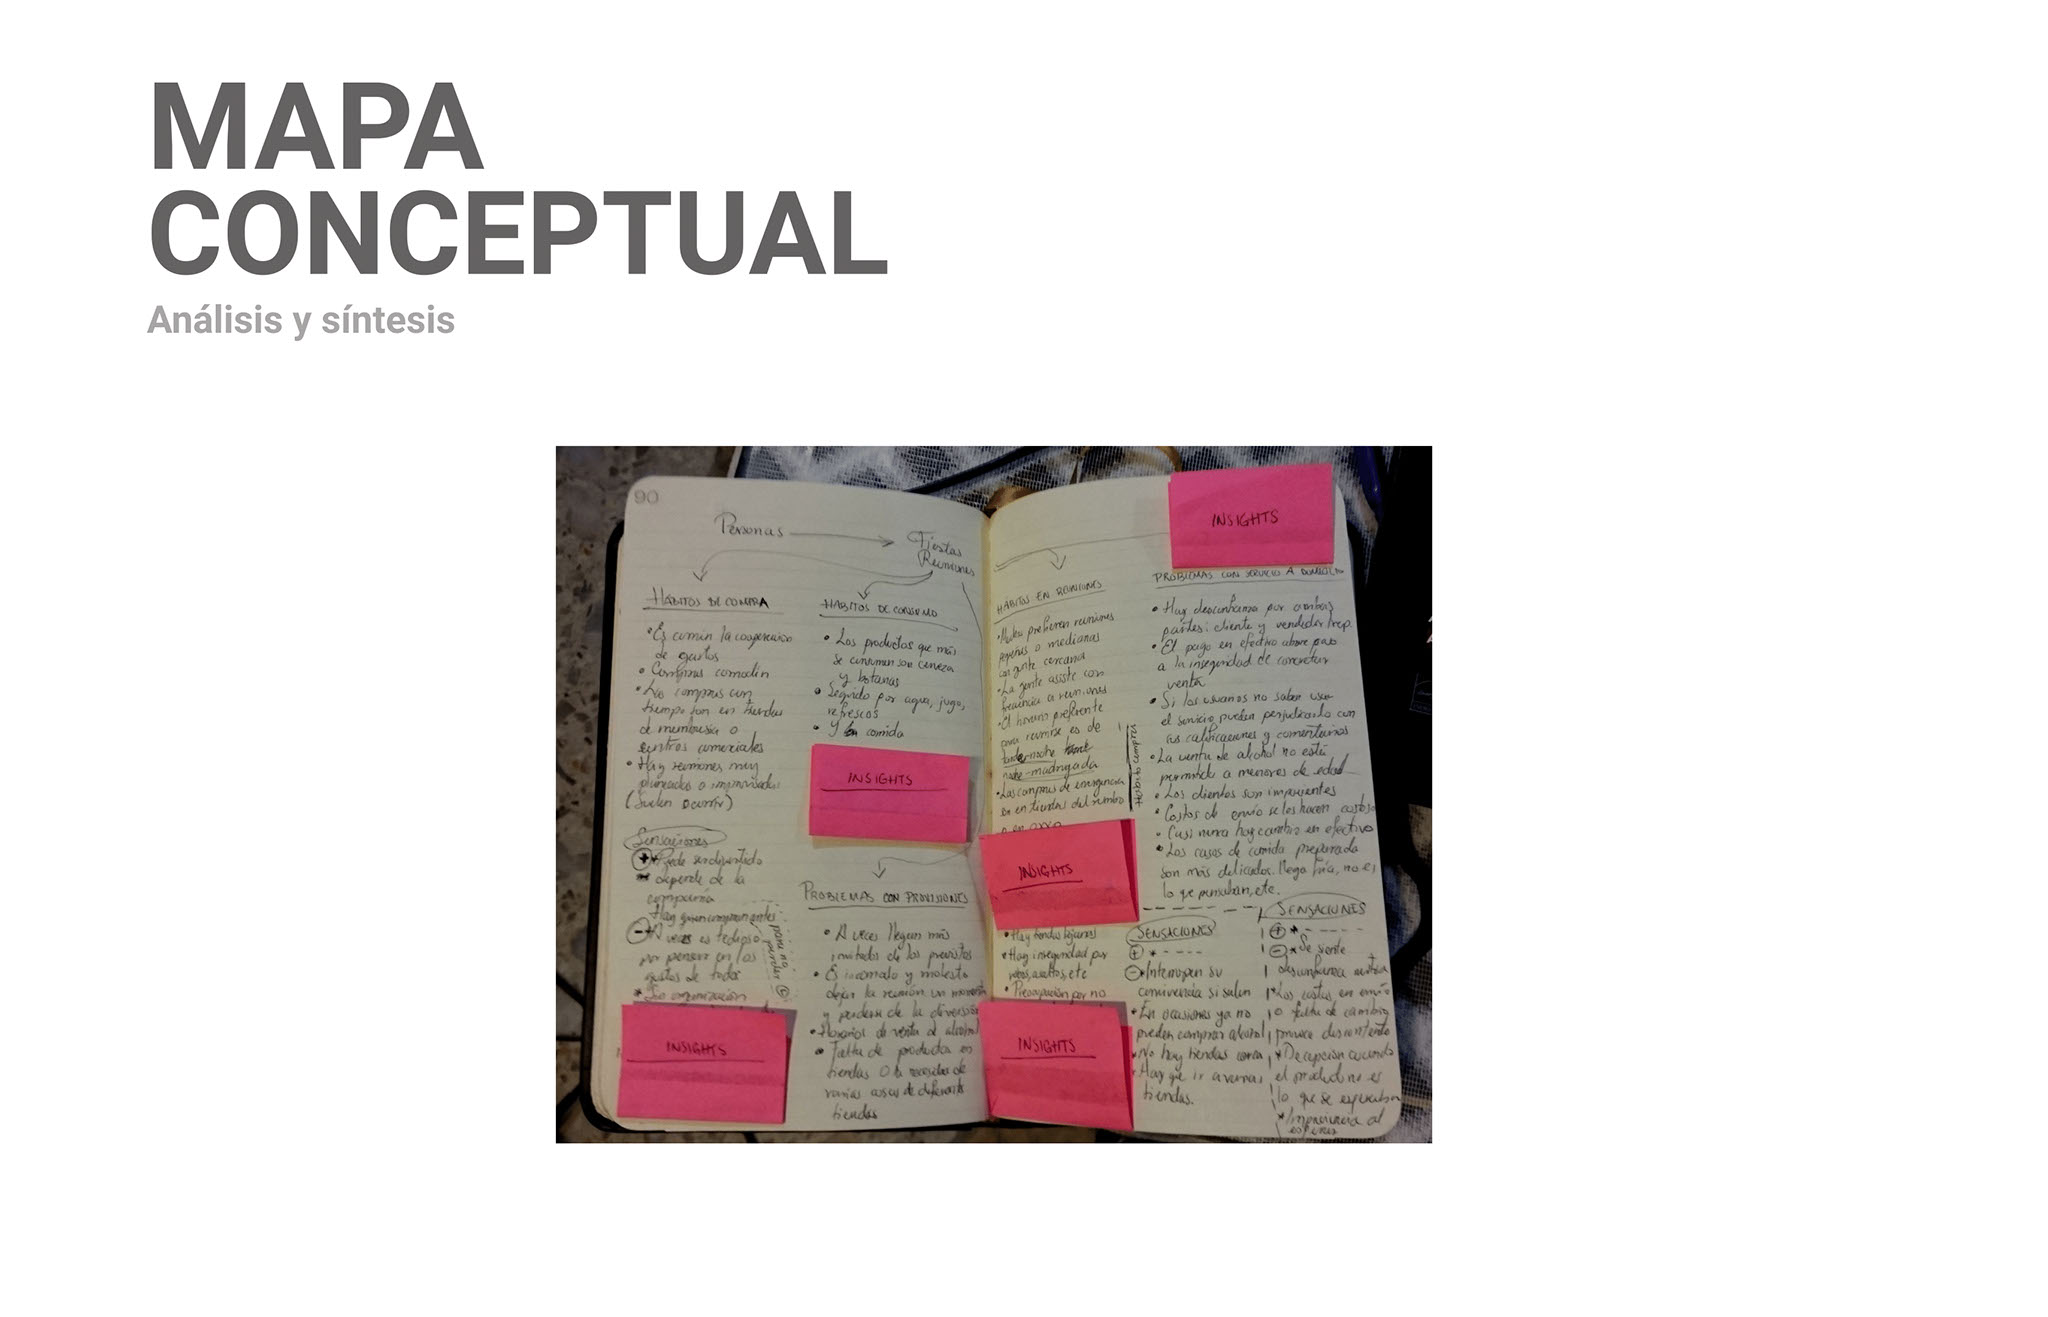 MAPA
CONCEPTUAL
Análisis y síntesis
90
Personas
Fiestas
Reuniones
HÁBITOS DE COMPRA
• Es común la cooperación
de gastos
• Compras comodín
• Las compras con
tiempo son en tiendas
de membresía o
centros comerciales
• Hay reuniones muy
planeadas o improvisadas
(Suelen ocurrir)
Sensaciones
+ Puede ser divertido
depende de la
compañía
Hay quien compra antes
para no
perder
- A veces es tedioso
por pensar en los
gustos de todos
* La organización
INSIGHTS
HÁBITOS DE CONSUMO
• Los productos que más
se consumen son cerveza
y botanas
• Seguido por agua, jugo,
refrescos
• Y la comida
INSIGHTS
PROBLEMAS CON PROVISIONES
• A veces llegan más
invitados de los previstos
• Es incómodo y molesto
dejar la reunión un momento
y perderse de la diversión
• Horarios de venta de alcohol
• Falta de productos en
tiendas O la necesidad de
varias cosas de diferentes
tiendas
HÁBITOS EN REUNIONES
prefieren reuniones
pequeñas o medianas
con gente cercana
• La gente asiste con
frecuencia a reuniones
• El horario preferente
para reunirse es de
noche-madrugada
• Las compras de emergencia
son en tiendas del rumbo
o en OXXO
INSIGHTS
• Hay tiendas lejanas
• Hay inseguridad por
robos, asaltos, etc
• Preocupación por no
INSIGHTS
INSIGHTS
PROBLEMAS CON SERVICIO A DOMICILIO
• Hay desconfianza por ambas
partes: cliente y vendedor/rep.
• El pago en efectivo abre paso
a la inseguridad de concretar
venta
• Si los usuarios no saben usar
el servicio pueden perjudicarlo con
sus calificaciones y comentarios
• La venta de alcohol no está
permitida a menores de edad
• Los clientes son impacientes
• Costos de envío se les hacen costosos
• Casi nunca hay cambio en efectivo
• Los casos de comida preparada
son más delicados. llega fría, no es
lo que pensaban, etc.
SENSACIONES
+ * - - - -
- * Interrumpen su
convivencia si salen
• En ocasiones ya no
pueden comprar alcohol
• No hay tiendas cerca
• Hay que ir a varias
tiendas.
SENSACIONES
+ * - - - - -
- * Se siente
desconfianza mutua
* Los costos en envío
o falta de cambio
provoca descontento
* Decepción cuando
el producto no es
lo que se esperaba
* Impaciencia al
esperar